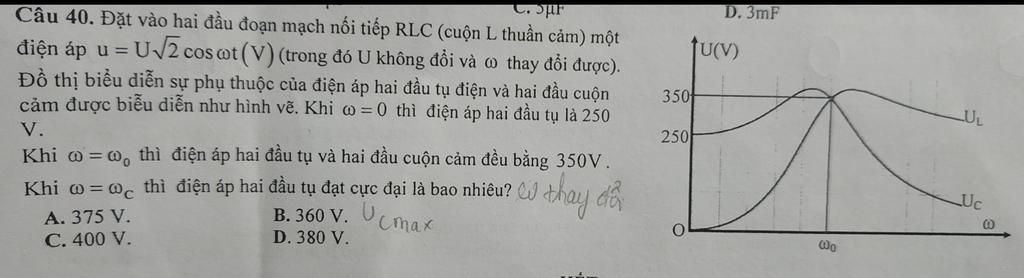 C. 5μF
D. 3mF
Câu 40. Đặt vào hai đầu đoạn mạch nối tiếp RLC (cuộn L thuần cảm) một
điện áp u = U√2 cos ωt (V) (trong đó U không đổi và ω thay đổi được).
Đồ thị biểu diễn sự phụ thuộc của điện áp hai đầu tụ điện và hai đầu cuộn
cảm được biễu diễn như hình vẽ. Khi ω = 0 thì điện áp hai đầu tụ là 250
V.
Khi ω = ω₀ thì điện áp hai đầu tụ và hai đầu cuộn cảm đều bằng 350V.
Khi ω = ω_C thì điện áp hai đầu tụ đạt cực đại là bao nhiêu? ω thay đổi
A. 375 V.
B. 360 V. U_Cmax
C. 400 V.
D. 380 V.
U(V)
350
250
O
U_L
U_C
ω
ω₀